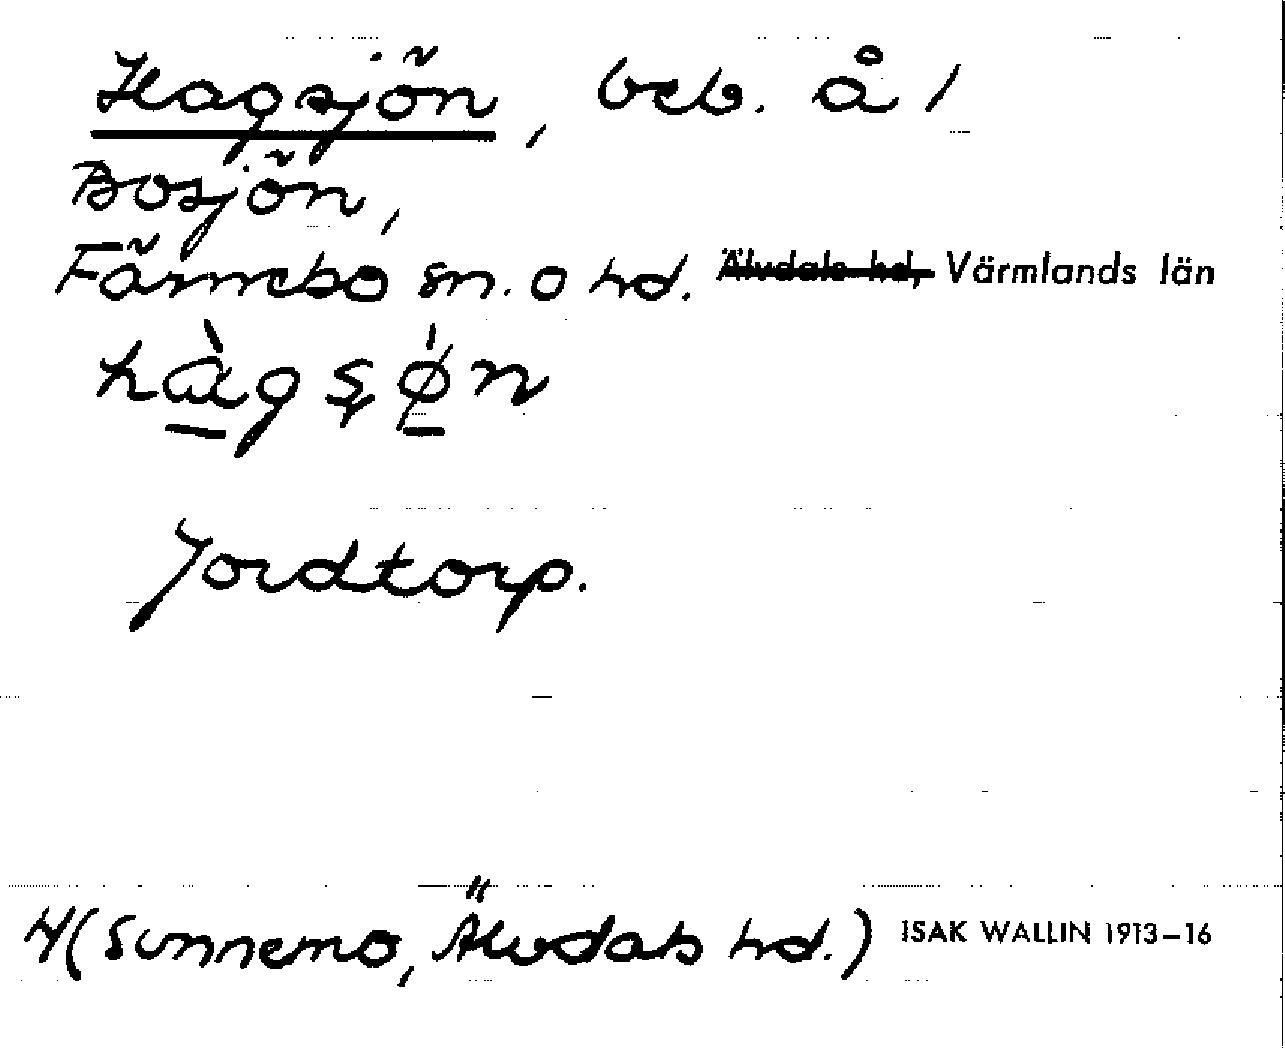 Hagsjön, beb. å /
Bosjön,
Färnebo sn. o hd. Älvdals hd, Värmlands län
hàgʂø̀n
Jordtorp.
H (Sunnemo, Älvdals hd.) ISAK WALLIN 1913–16